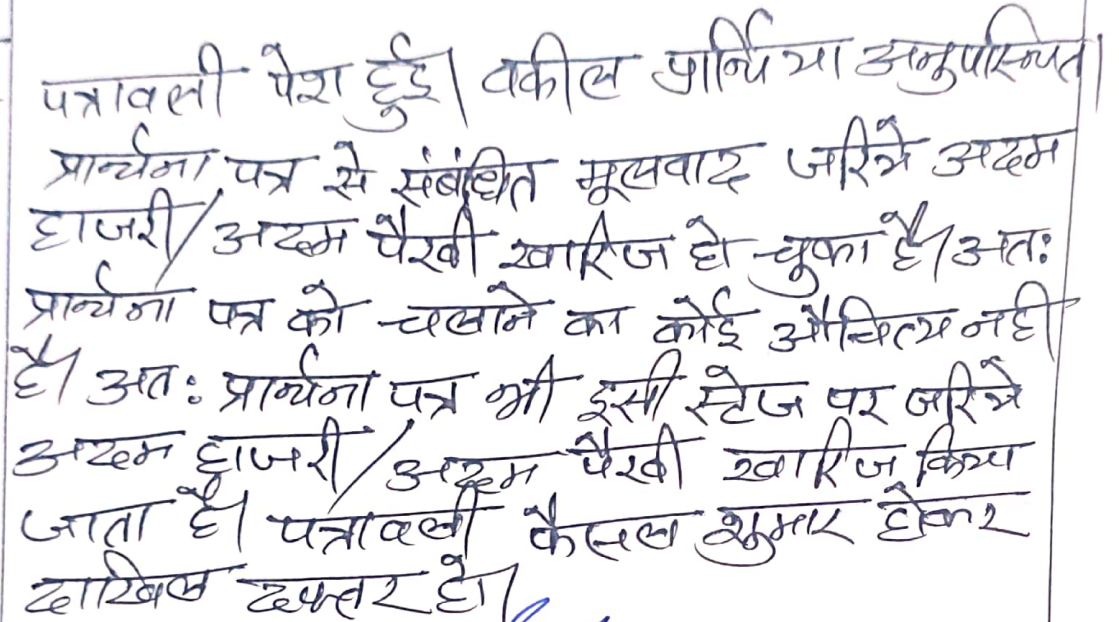 पत्रावली पेश हुई। वकील प्रार्थिया अनुपस्थित।
प्रार्थना पत्र से संबंधित मूलवाद जरिये अदम
हाजरी/अदम पैरवी खारिज हो चुका है। अतः
प्रार्थना पत्र को चलाने का कोई औचित्य नही
है। अतः प्रार्थना पत्र भी इसी स्टेज पर जरिये
अदम हाजरी/अदम पैरवी खारिज किया
जाता है। पत्रावली फैसल शुमार होकर
दाखिल दफ्तर हो।